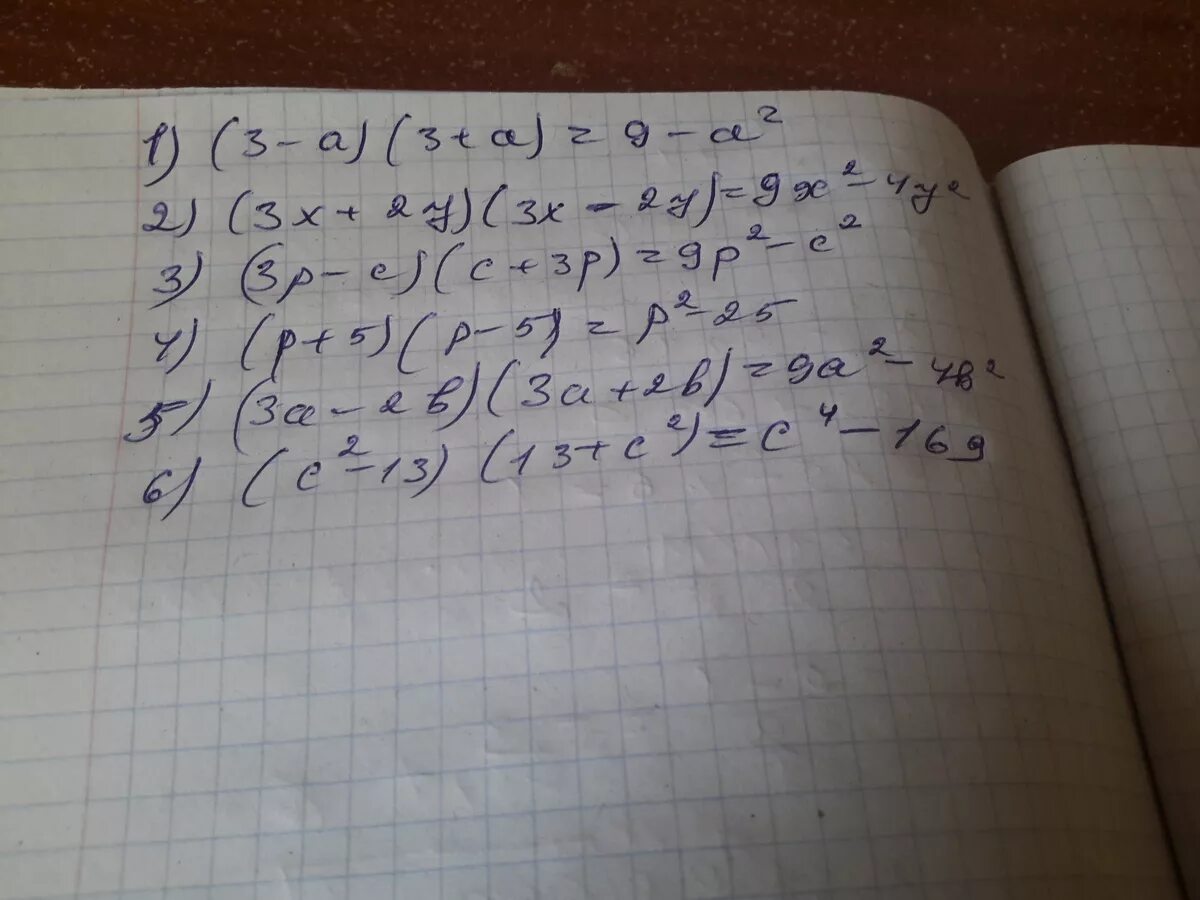 1) (3-a)(3+a) = 9-a²
2) (3x+2y)(3x-2y)=9x²-4y²
3) (3p-c)(c+3p)=9p²-c²
4) (p+5)(p-5)=p²-25
5) (3a-2b)(3a+2b)=9a²-4b²
6) (c²-13)(13+c²)=c⁴-169